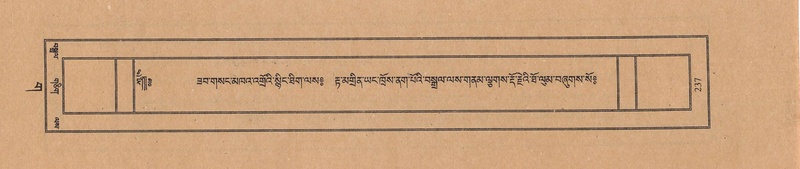 ཟབ་གསང་མཁའ་འགྲོའི་སྙིང་ཐིག་ལས༔ རྟ་མགྲིན་ཡང་ཁྲོས་ནག་པོའི་བསྒྲུལ་ལས་གནམ་ལྕགས་རྡོ་རྗེའི་ཐོ་ལུམ་བཞུགས་སོ༔
གཅིག
ག
237